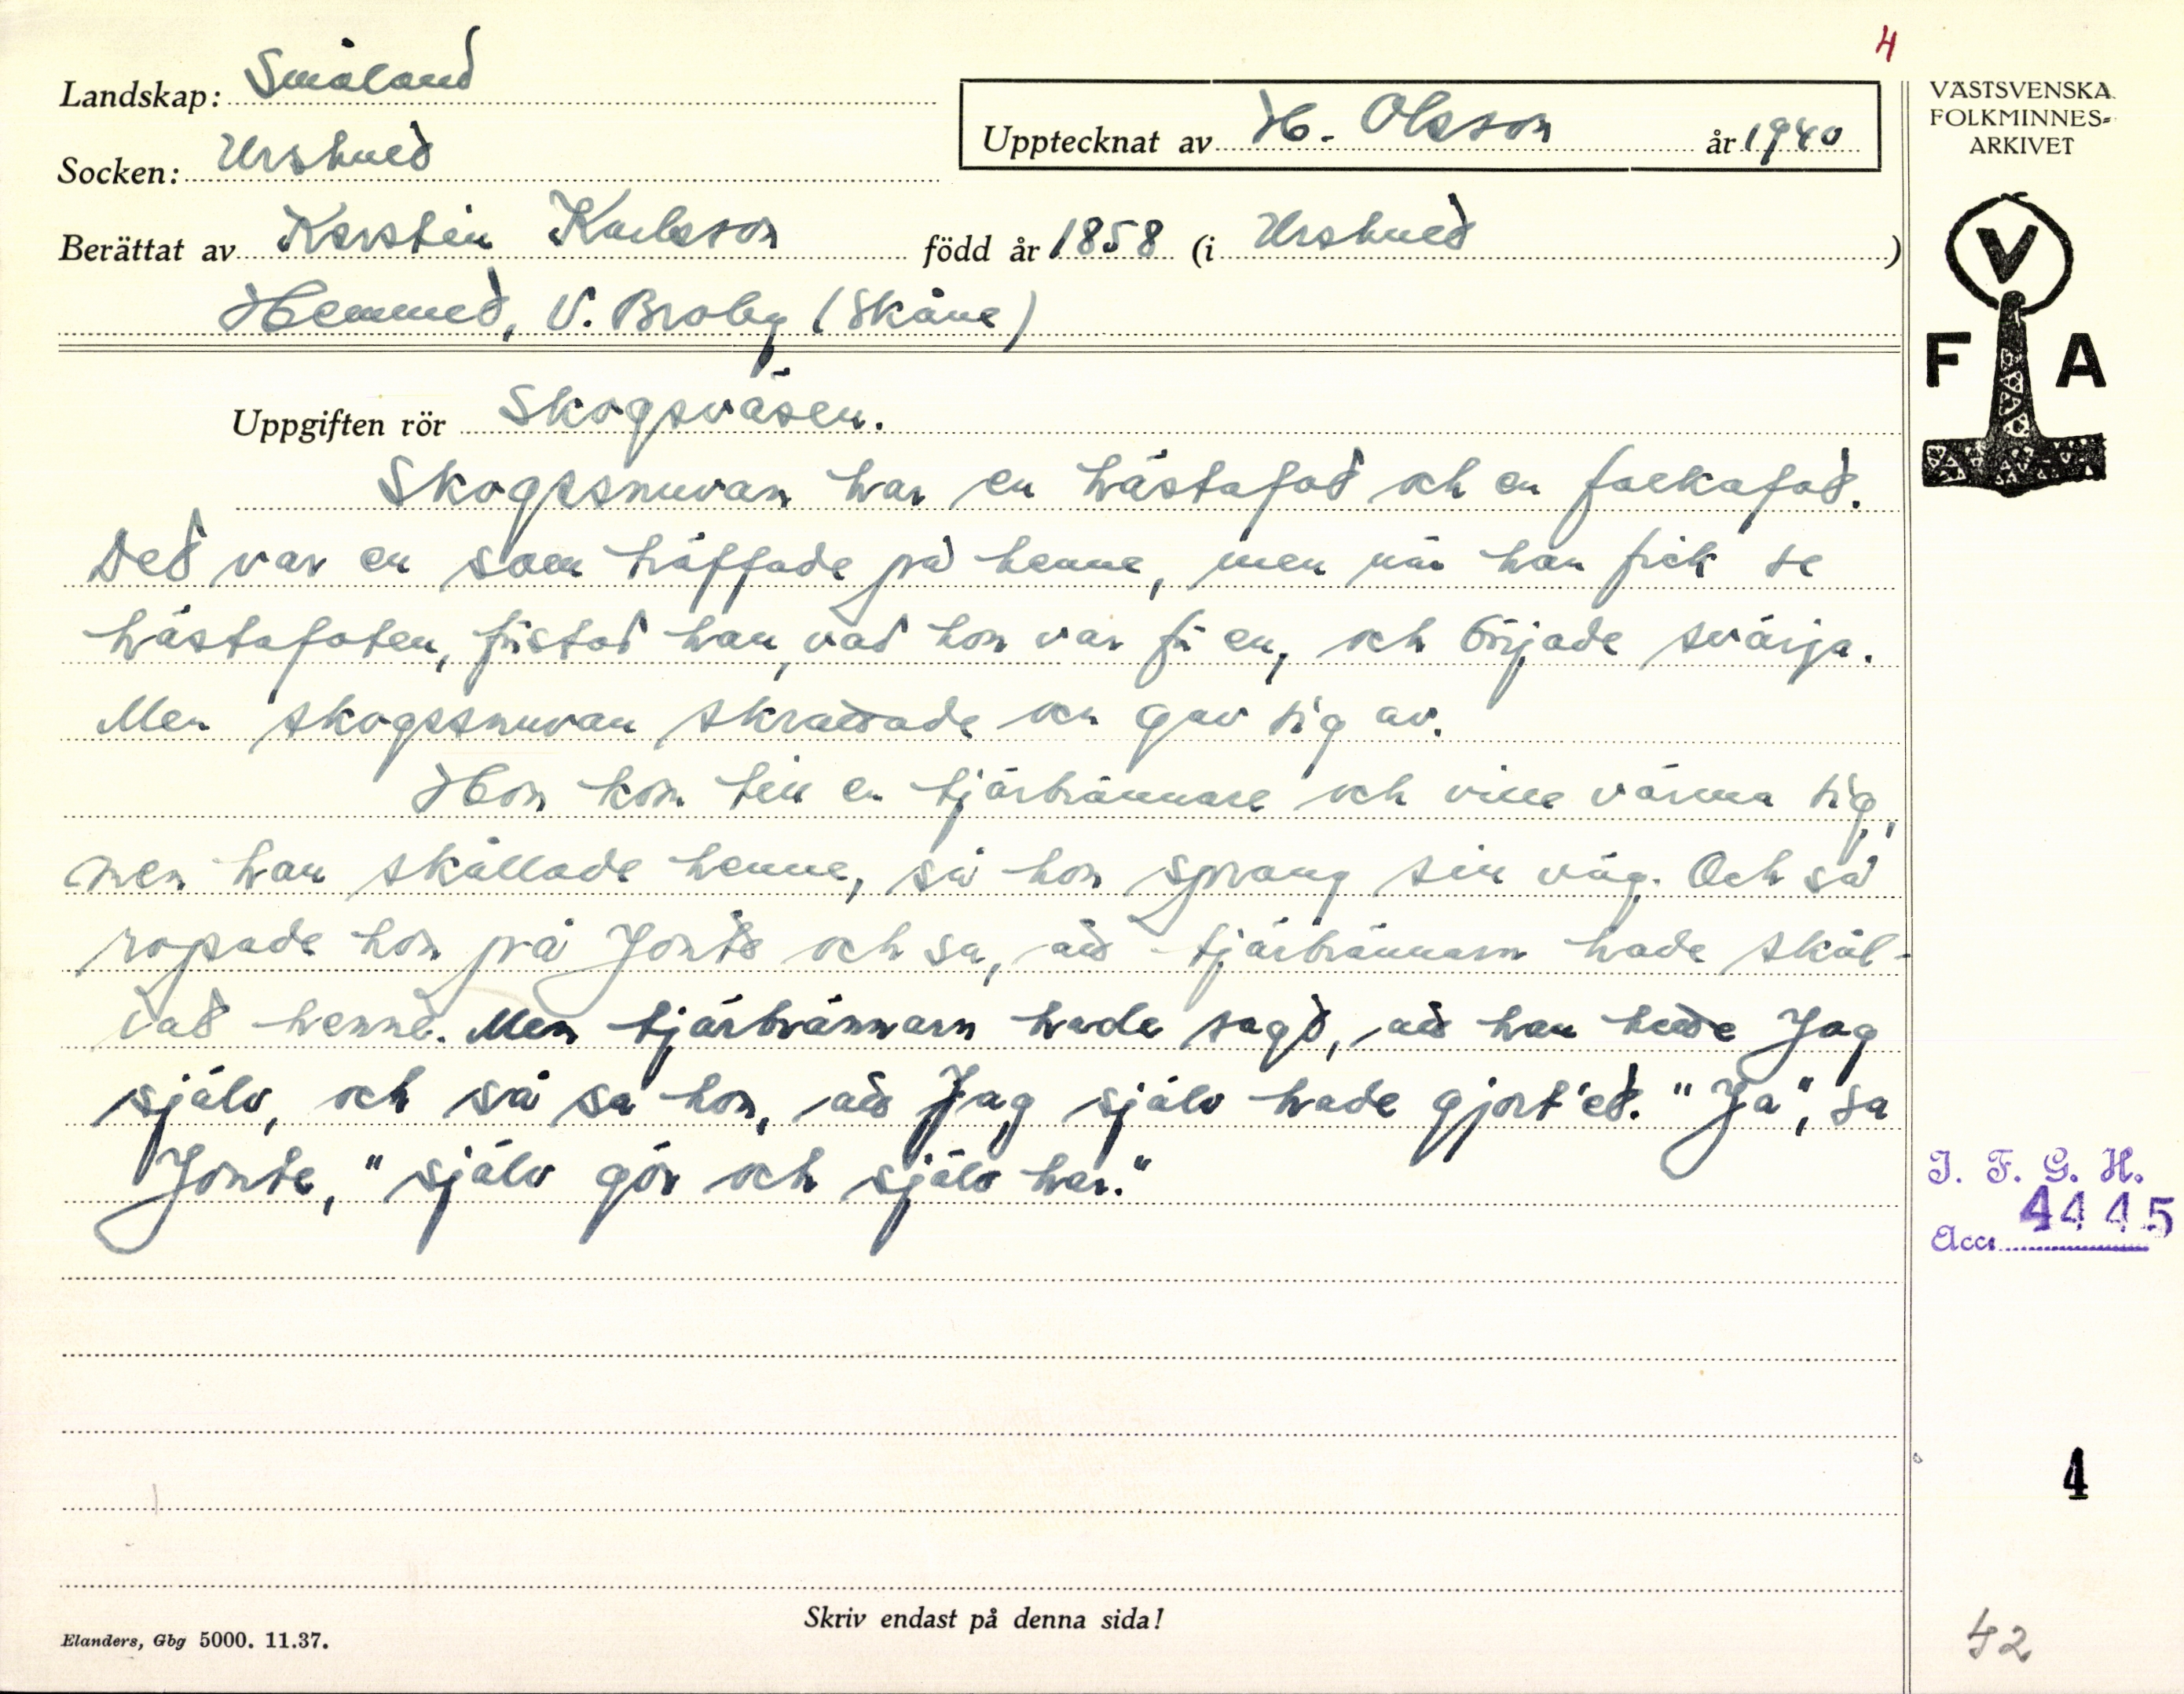 4
Landskap: Småland
Socken: Urshult
Upptecknat av H. Olsson år 1940
Berättat av Kerstin Karlsson född år 1858 (i Urshult)
Hemmet, V. Broby (Skåne)
VÄSTSVENSKA
FOLKMINNES-
ARKIVET
V
F A
Uppgiften rör Skogsväsen.
Skogssnuvan har en hästafot och en folkafot.
Det var en som träffade på henne, men när han fick se
hästafoten, förstod han, vad hon var för en, och började svärja.
Men skogssnuvan skrattade och gav sig av.
Hon kom till en tjärbrännare och ville värma sig,
men han skållade henne, så hon sprang sin väg. Och så
ropade hon på Jonte och sa, att tjärbrännarn hade skål-
lat henne. Men tjärbrännarn hade sagt, att han hette Jag
själv, och så sa hon, att Jag själv hade gjort'et. "Ja", sa
Jonte, "själv gör och själv har."
I. F. G. H.
Acc. 4445
4
Skriv endast på denna sida!
Elanders, Gbg 5000. 11.37.
42